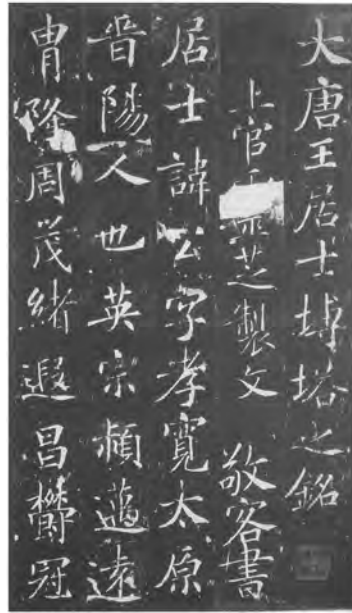 大唐王居士塼塔之銘
上官靈芝製文 敬客書
居士諱公字孝寬太原
晉陽人也英宗頴邁遠
胄隆周茂緒遐昌欝冠